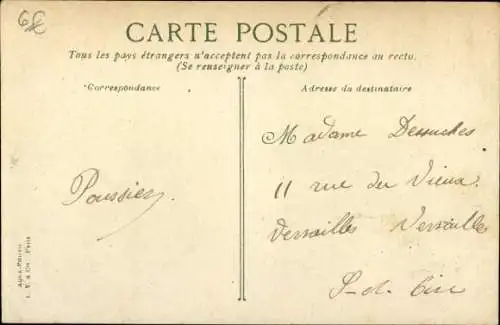 6€
CARTE POSTALE
Tous les pays étrangers n'acceptent pas la correspondance au recto.
(Se renseigner à la poste)
Correspondance
Adresse du destinataire
Madame Dessuches
11 rue du Vieux
Versailles Versailles
S-et-Oise
Poussier
AQUA-PHOTO
L. V. & Cie, PARIS